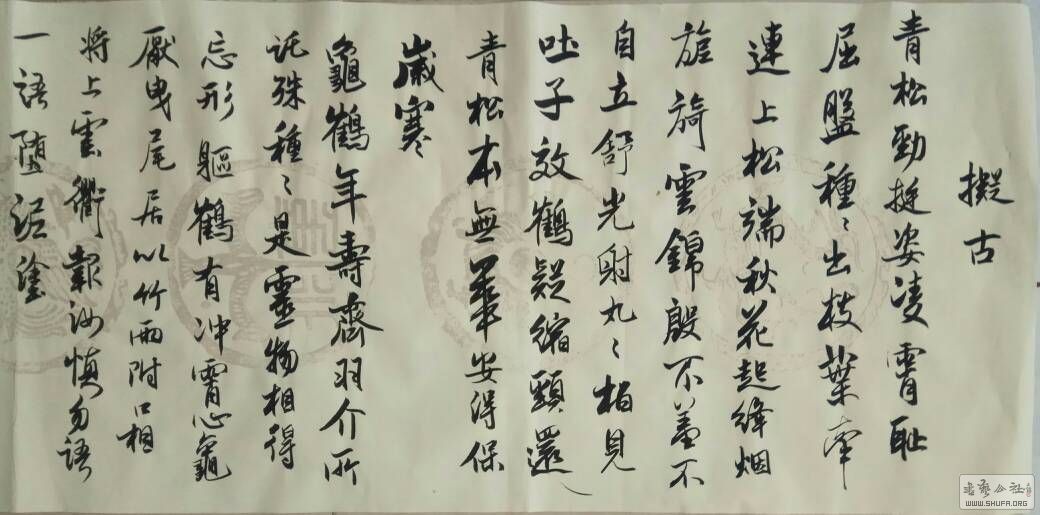 擬古
青松勁挺姿凌霄耻
屈盤種〻出枝葉牽
連上松端秋花起絳烟
旖旎雲錦殷不羞不
自立舒光射丸〻柏見
吐子效鶴疑縮頸還
青松本無華安得保
歲寒
龜鶴年壽齊羽介所
託殊種〻是靈物相得
忘形軀鶴有冲霄心龜
厭曳尾居以竹兩附口相
將上雲衢報汝慎勿語
一語墮泥塗
書藝公社
WWW.SHUFA.ORG